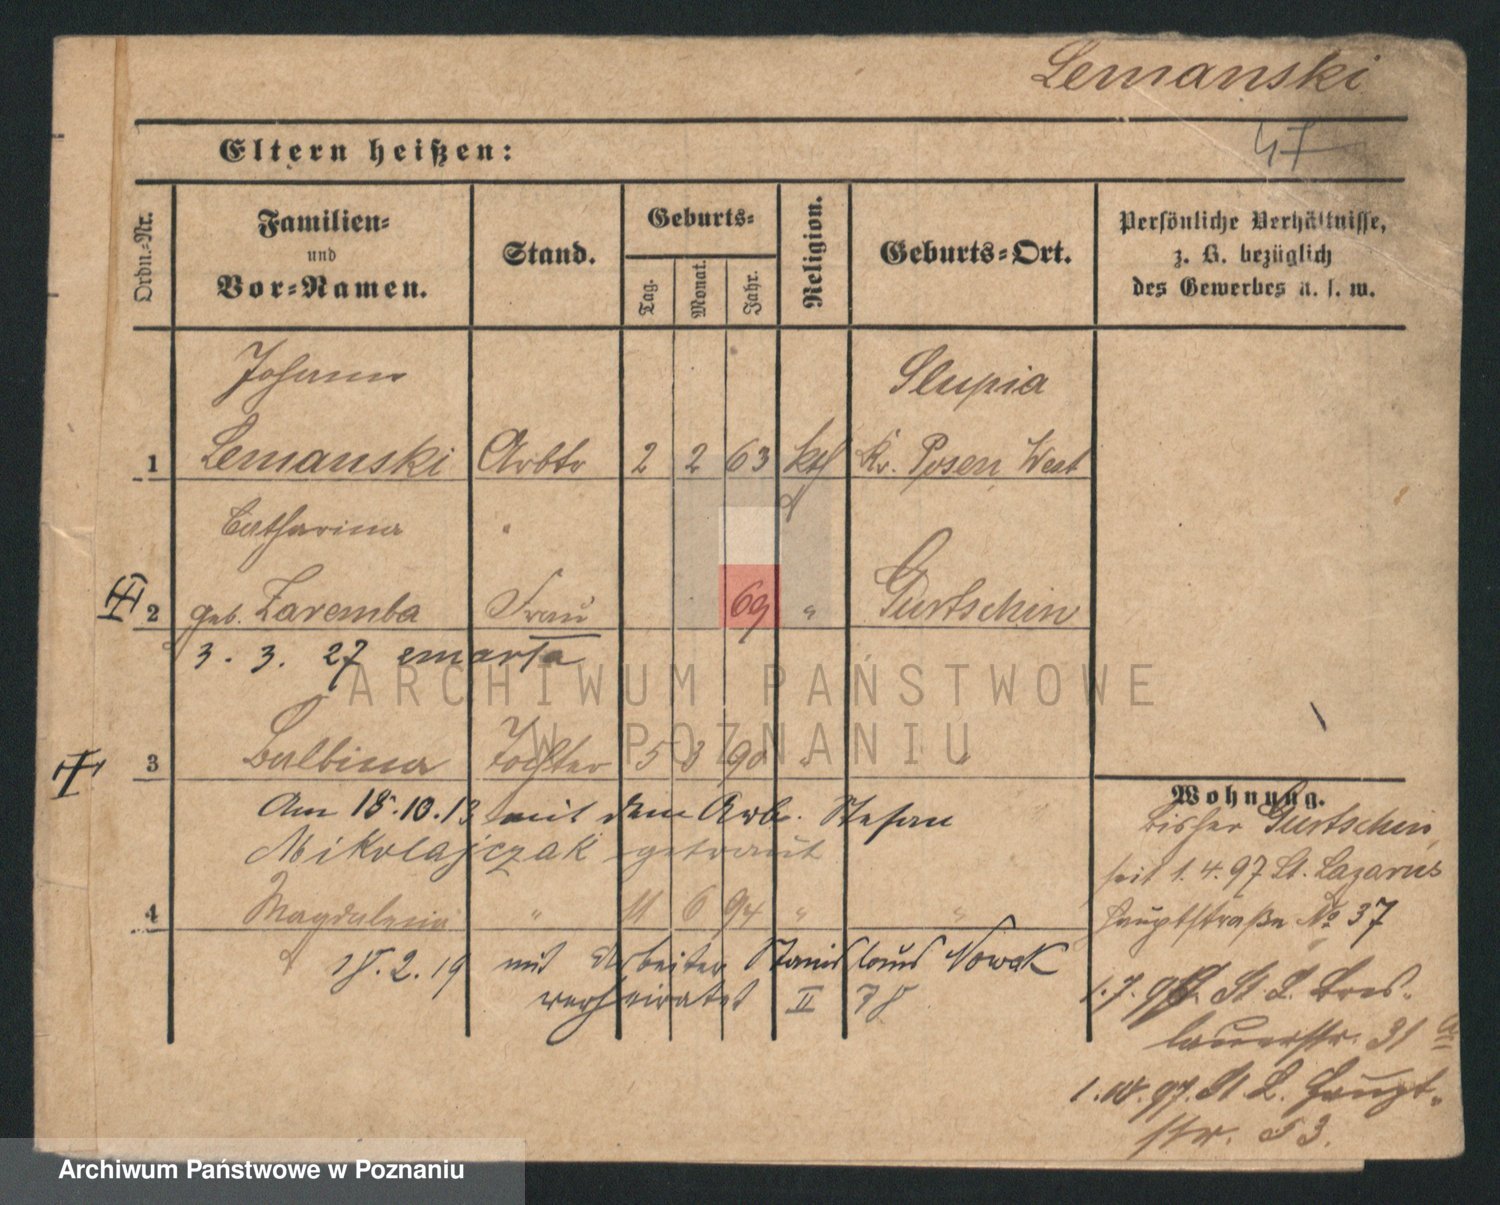 Lemanski
47
Eltern heißen:
Ordn.-Nr.
Familien-
und
Vor-Namen.
Stand.
Geburts-
Tag.
Monat.
Jahr.
Religion.
Geburts-Ort.
Persönliche Verhältnisse,
z. B. bezüglich
des Gewerbes u. s. w.
Johann
Slupia
1 Lemanski Arbtr 2 2 63 kth Kr. Posen West
Catharina
2 geb. Zaremba Frau 69 " Gurtschin
3. 3. 27 zmarła
3 Balbina Tochter 5 3 90 " "
Am 18.10.13 mit dem Arb. Stefan
Mikolajczak getraut
4 Magdalena " 11 6 94 " "
18.2.19 mit Arbeiter Stanislaus Nowak
verheiratet II 78
Wohnung.
bisher Gurtschin,
seit 1.4.97 St. Lazarus
Hauptstraße No 37
1.7.97. St. L. Bres-
lauerstr. 31 a
1.10.97. St. L. Haupt-
str. 53.
ARCHIWUM PAŃSTWOWE
W POZNANIU
Archiwum Państwowe w Poznaniu